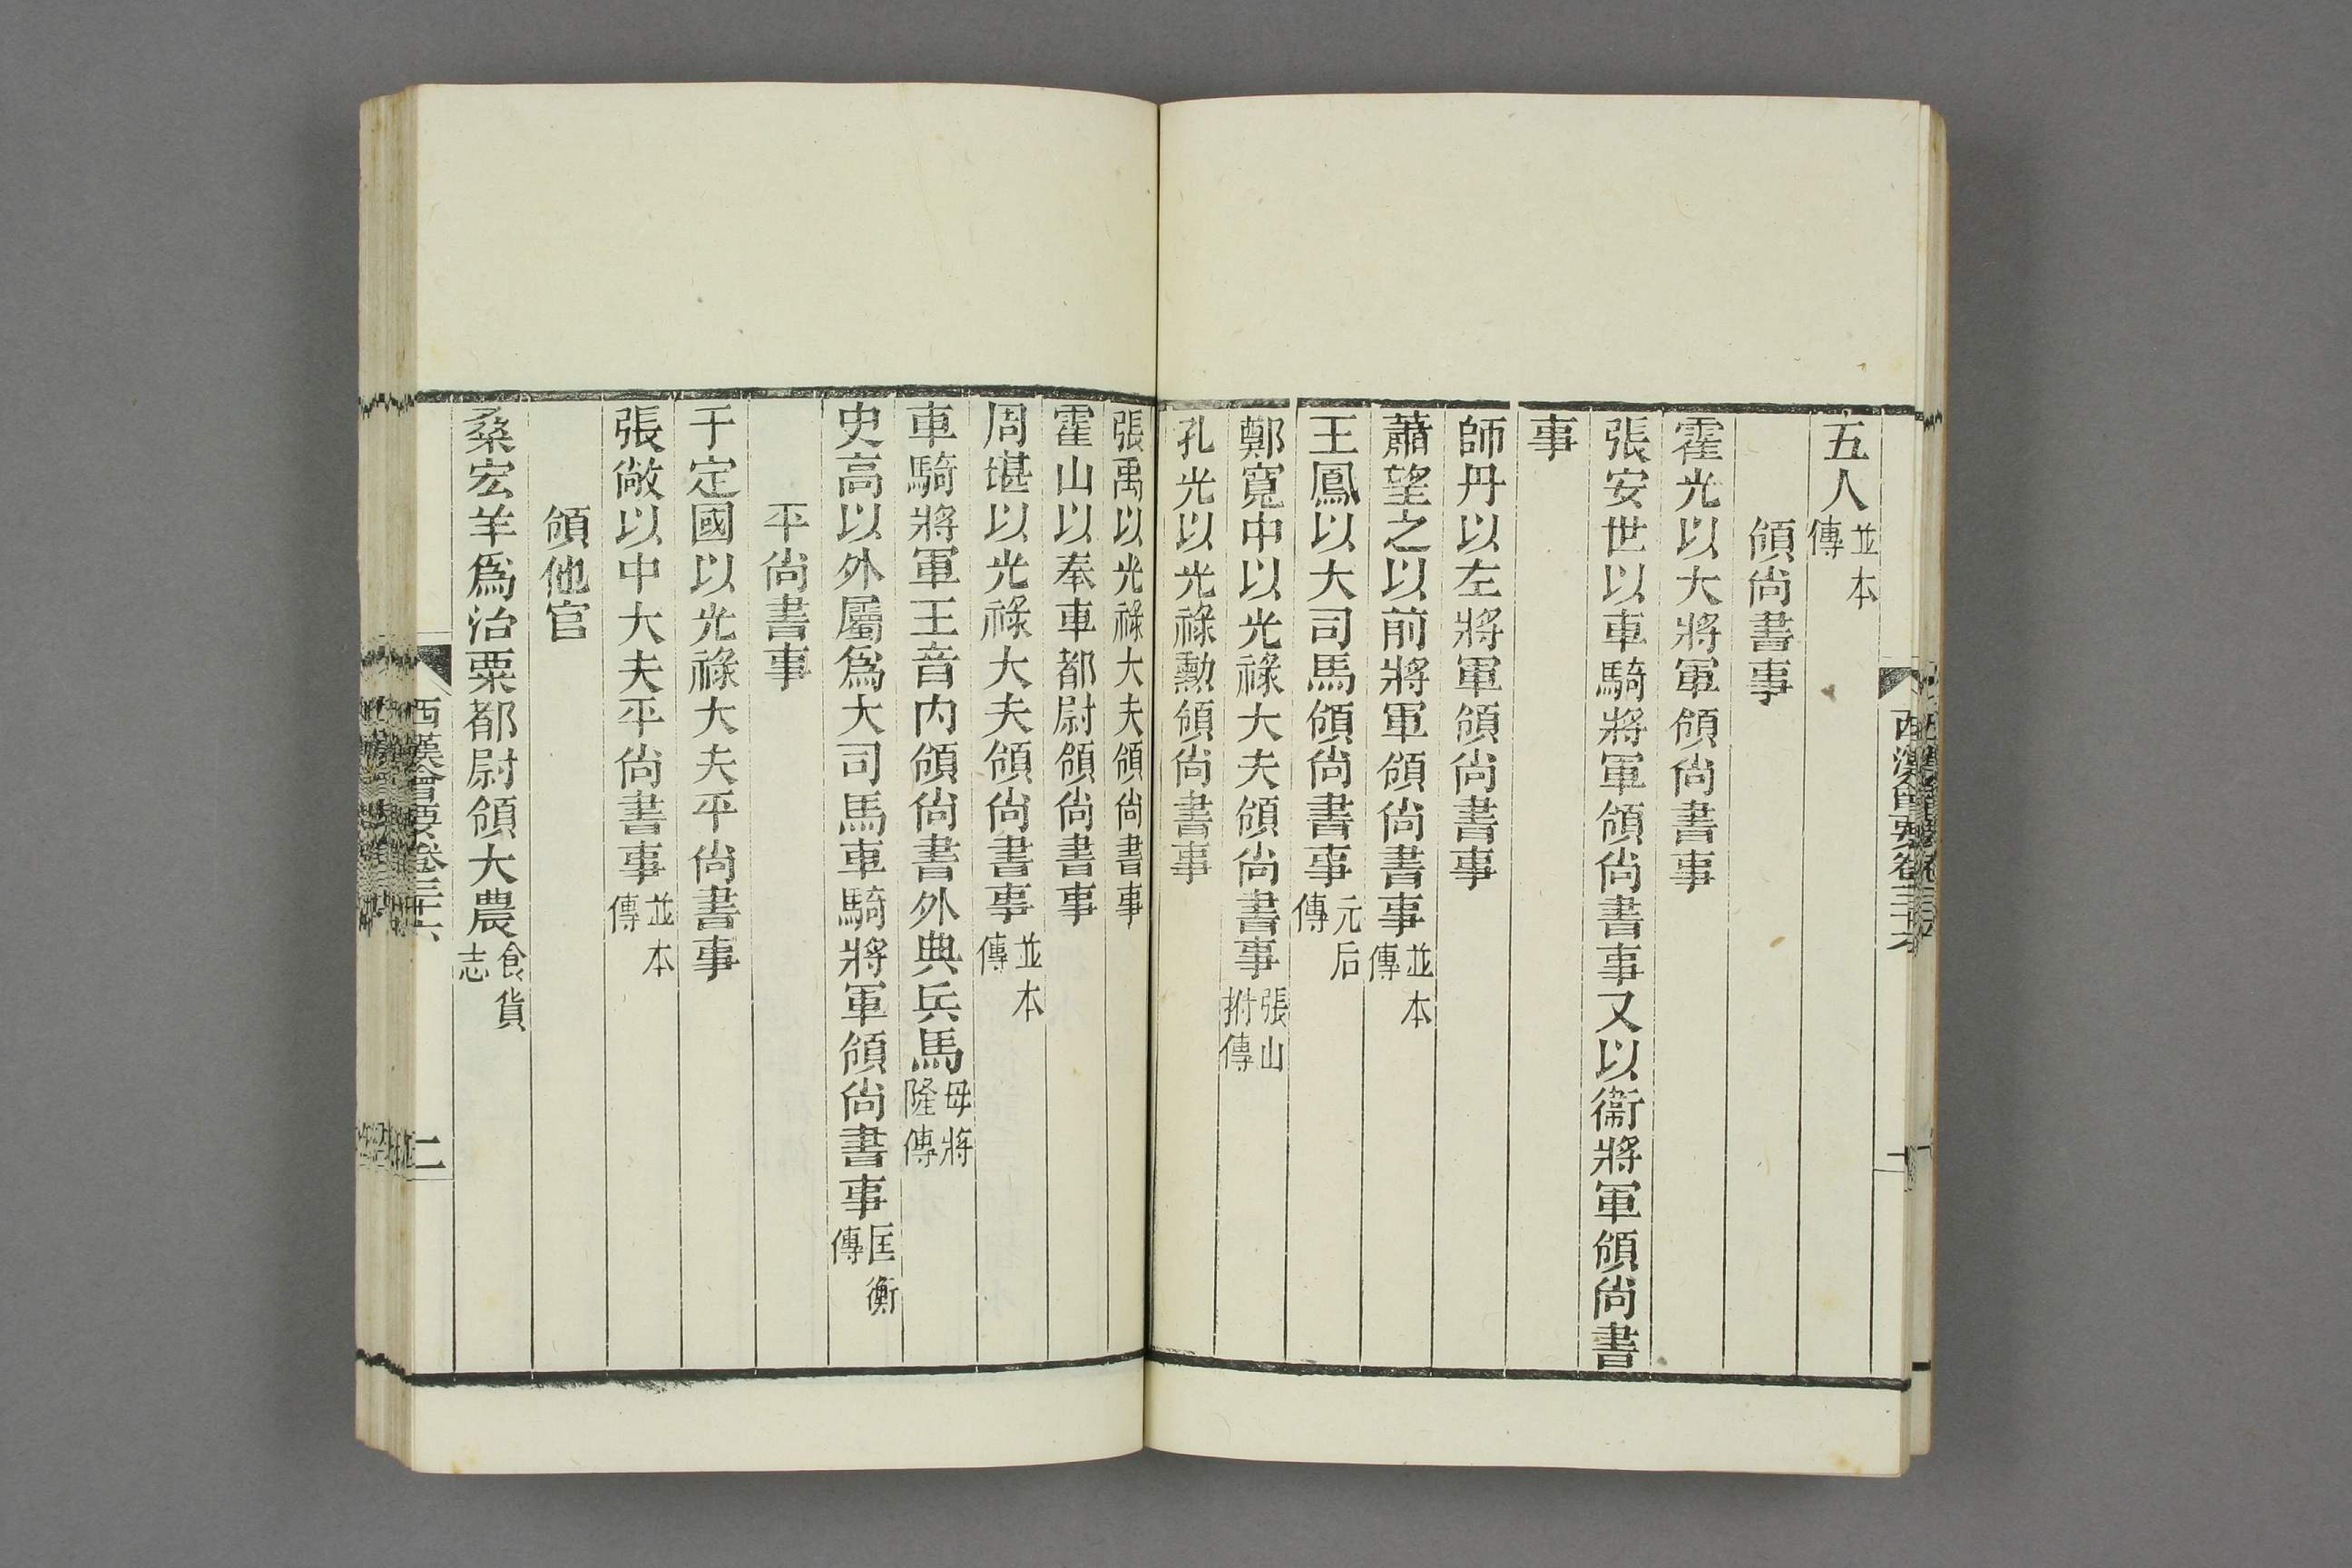 五人並本傳
領尙書事
霍光以大將軍領尙書事
張安世以車騎將軍領尙書事又以衞將軍領尙書
事
師丹以左將軍領尙書事
蕭望之以前將軍領尙書事並本傳
王鳳以大司馬領尙書事元后傳
鄭寬中以光祿大夫領尙書事張山拊傳
孔光以光祿勲領尙書事
張禹以光祿大夫領尙書事
霍山以奉車都尉領尙書事
周堪以光祿大夫領尙書事並本傳
車騎將軍王音内領尙書外典兵馬毋將隆傳
史高以外屬爲大司馬車騎將軍領尙書事匡衡傳
平尙書事
于定國以光祿大夫平尙書事
張敞以中大夫平尙書事並本傳
領他官
桑宏羊爲治粟都尉領大農食貨志
西漢會要卷三十六
二